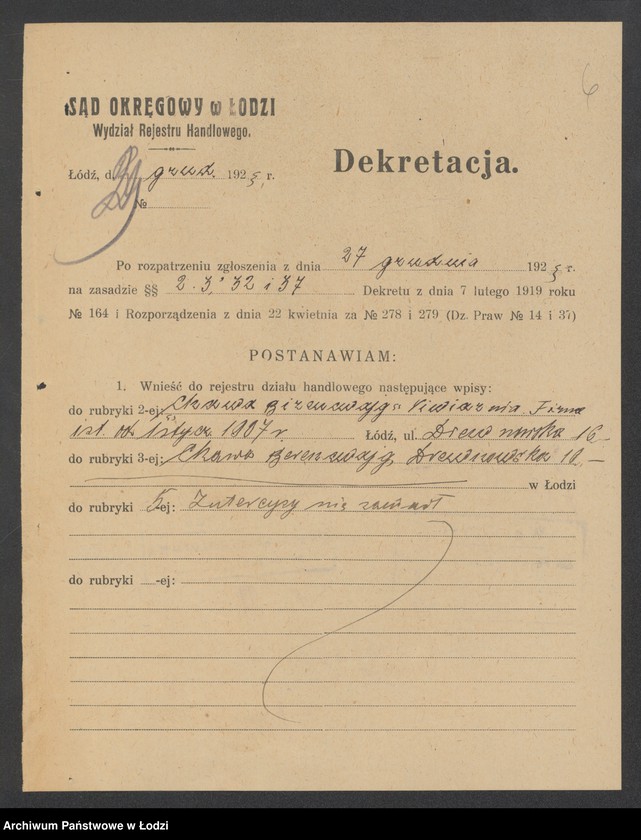 6
SĄD OKRĘGOWY w ŁODZI
Wydział Rejestru Handlowego.
Dekretacja.
Łódź, d. grud. 1925 r.
№
Po rozpatrzeniu zgłoszenia z dnia 27 grudnia 1925 r.
na zasadzie §§ 2. 3, 32 i 37 Dekretu z dnia 7 lutego 1919 roku
№ 164 i Rozporządzenia z dnia 22 kwietnia za № 278 i 279 (Dz. Praw № 14 i 37)
POSTANAWIAM:
1. Wnieść do rejestru działu handlowego następujące wpisy:
do rubryki 2-ej: Chawa Firma
ist. od 1 stycz. 1907 r. Łódź, ul. Drewnowska 16
do rubryki 3-ej: Chawa Drewnowska 10. —
w Łodzi
do rubryki 5-ej: Intercyzy nie zawarł
do rubryki -ej:
Archiwum Państwowe w Łodzi